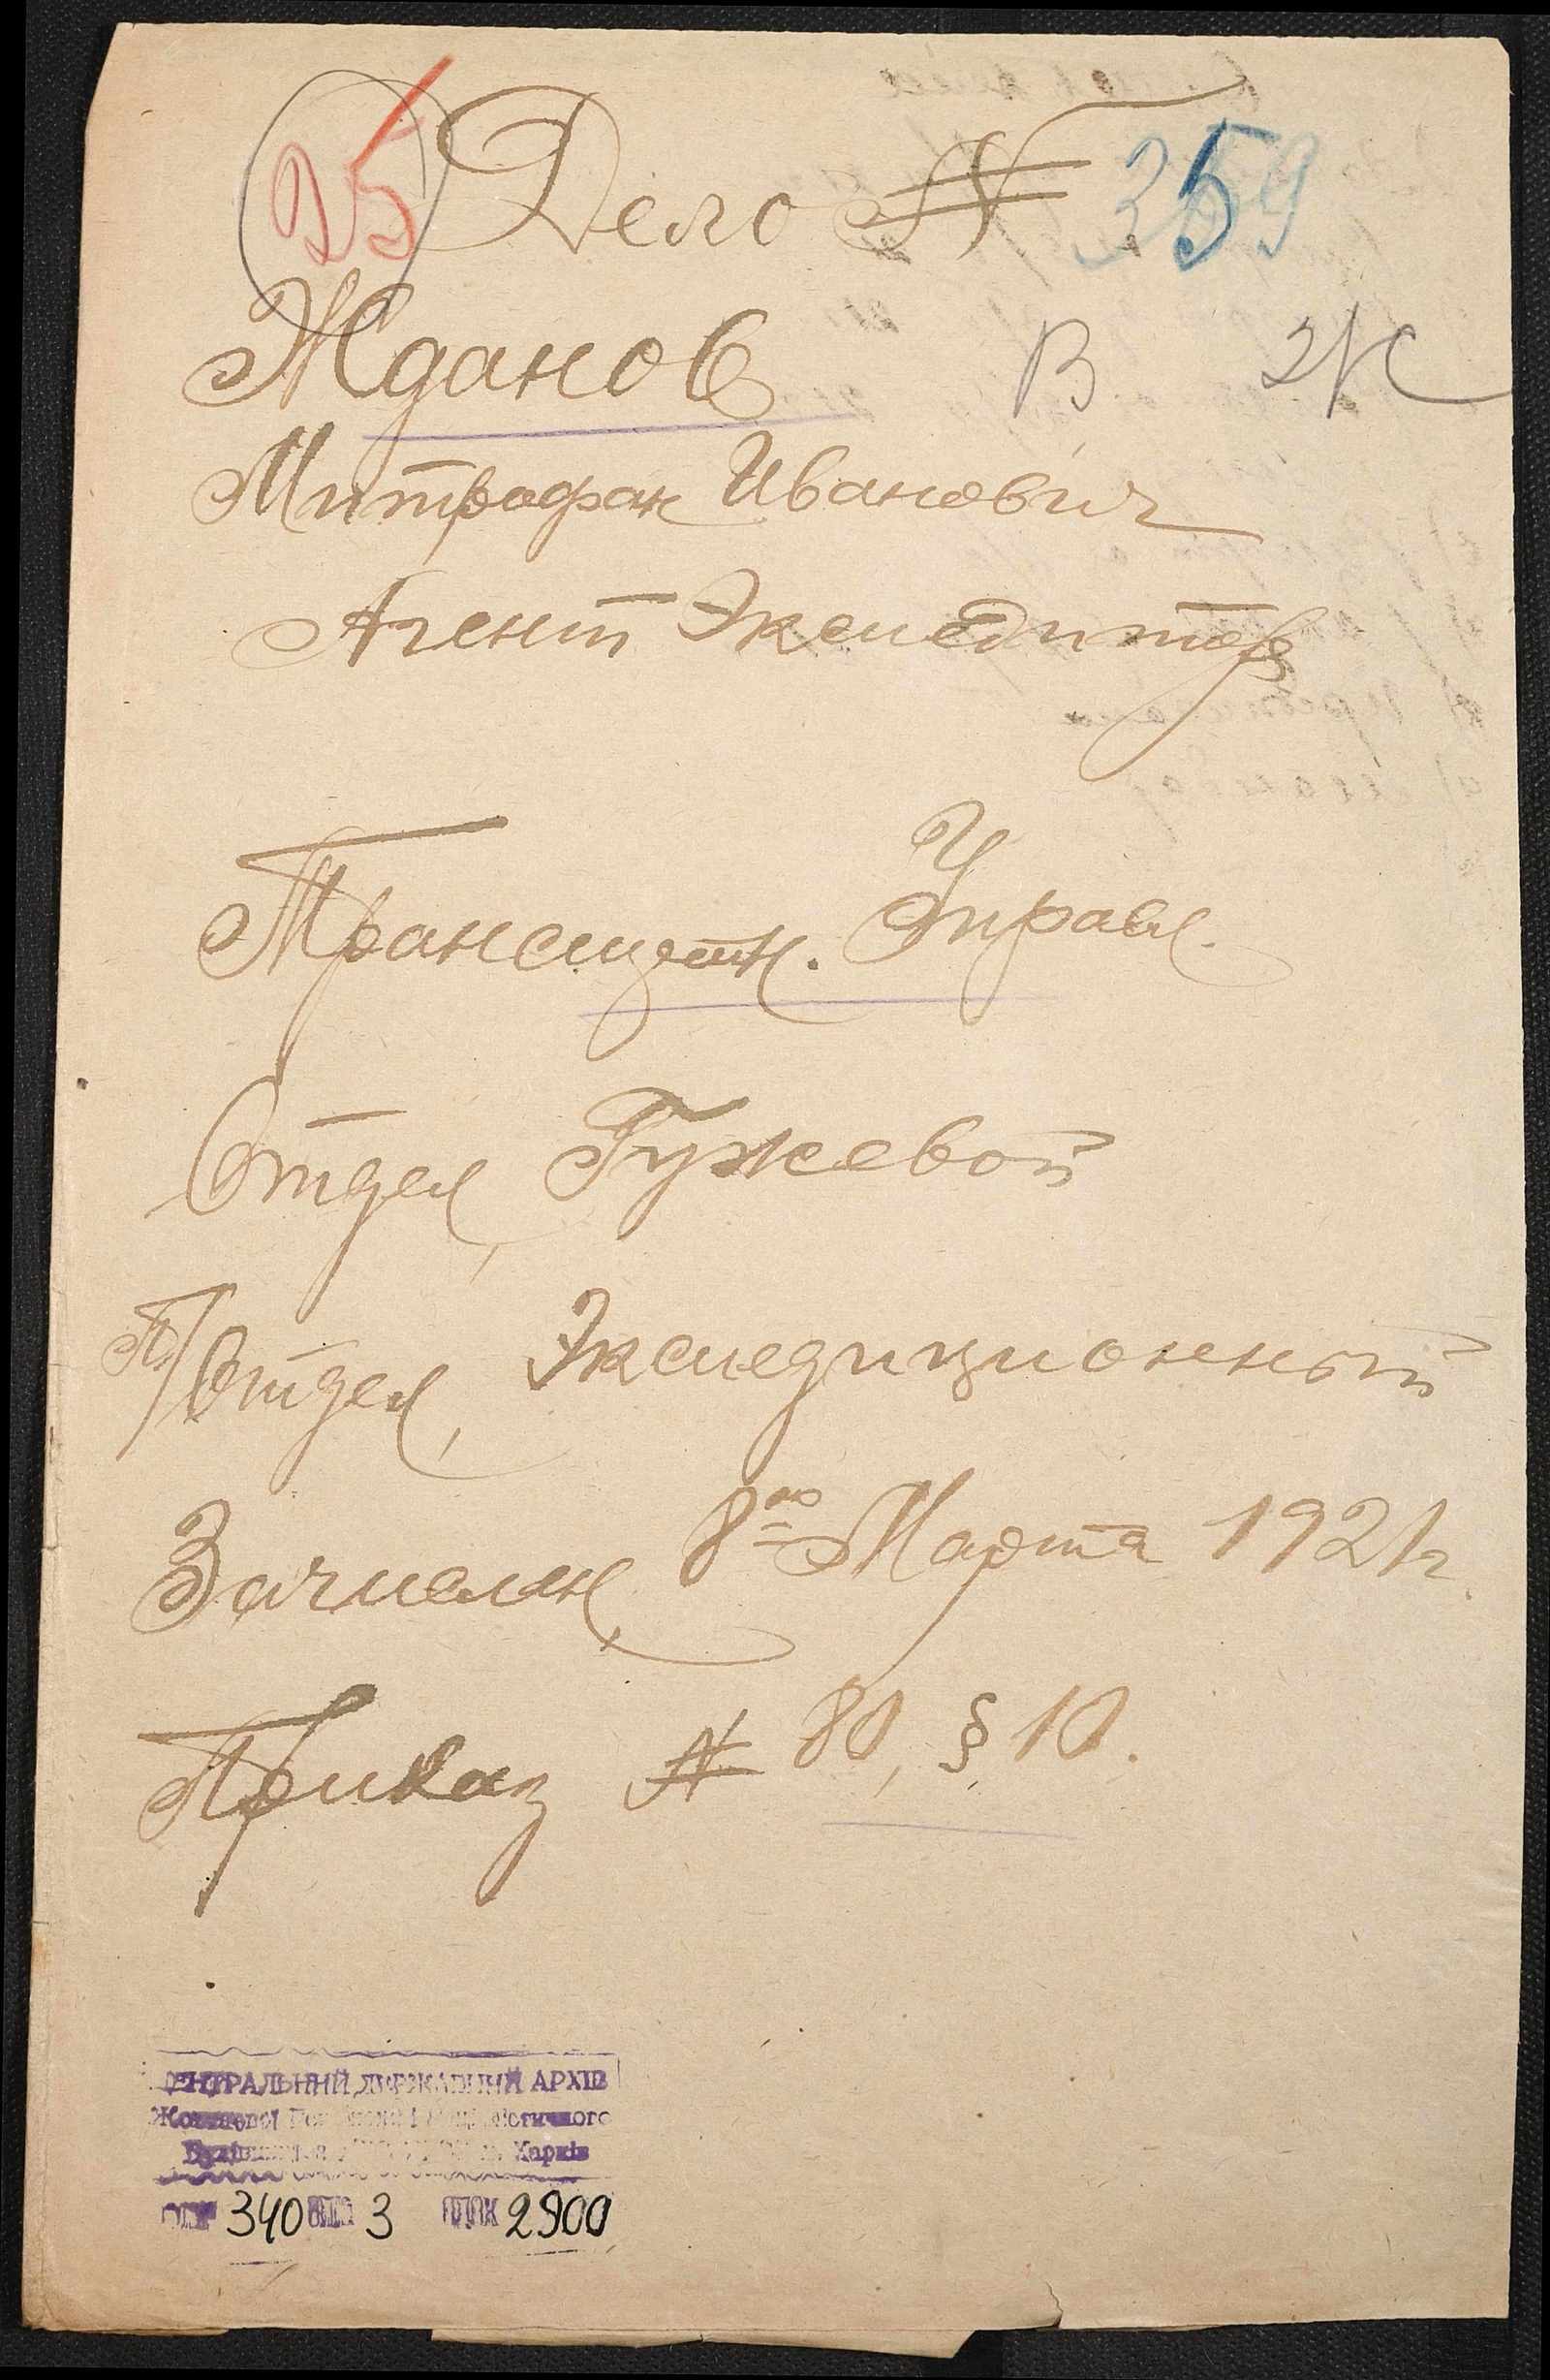 25 Дело № 359
Жданов В Ж
Митрофан Иванович
Агент Экспедитор
Управл.
Отдел Гужевой
П/Отдел, Экспедиционный
Зачислен 8го Марта 1921г.
Приказ № 80, § 10.
ЦЕНТРАЛЬНИЙ ДЕРЖАВНИЙ АРХІВ
Харків
340 3 2900